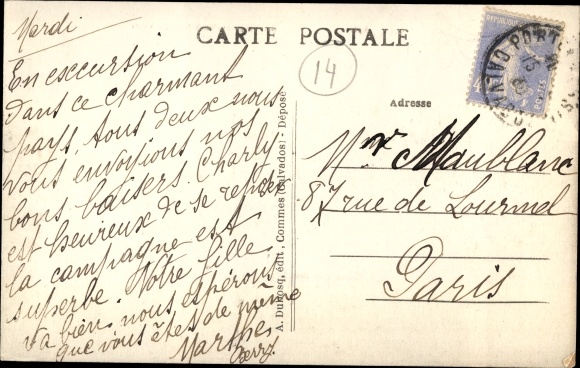 Mardi
CARTE POSTALE
14
En excursion
dans ce charmant
pays tous deux nous
vous envoyions nos
bons baisers. Charly
est heureux de se
la campagne est
superbe. Votre fille
va bien, nous espérons
que vous êtes de même
Marthe
A. Dubosq, édit., Commes (Calvados) - Déposé
Adresse
Mr Maublanc
87 rue de Lourmel
Paris
POSTES